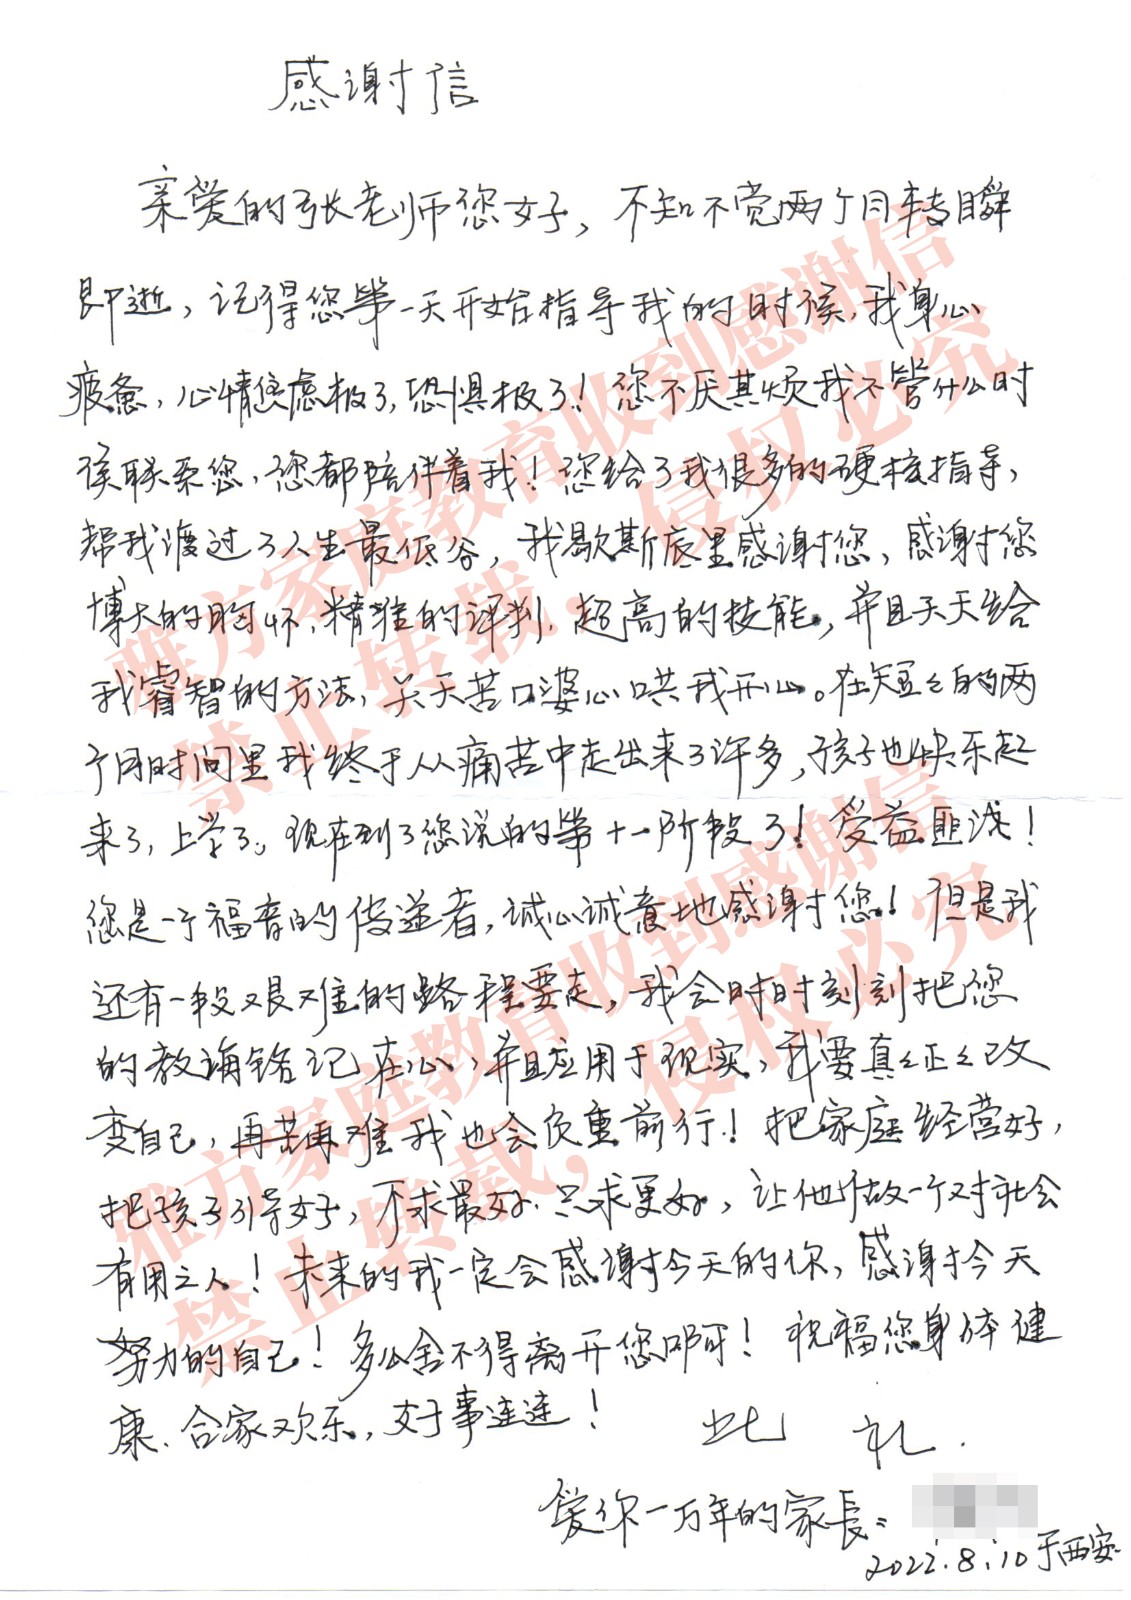 感谢信
亲爱的张老师您好，不知不觉两个月转瞬
即逝，记得您第一天开始指导我的时候，我身心
疲惫，心情焦虑极了，恐惧极了！您不厌其烦我不管什么时
候联系您，您都陪伴着我！您给了我很多的硬核指导，
帮我渡过了人生最低谷，我歇斯底里感谢您，感谢您
博大的胸怀，精准的评判，超高的技能，并且天天给
我睿智的方法，天天苦口婆心哄我开心。在短々的两
个月时间里我终于从痛苦中走出来了许多，孩子也快乐起
来了，上学了。现在到了您说的第十一阶段了！受益匪浅！
您是一个福音的传递者，诚心诚意地感谢您！但是我
还有一段艰难的路程要走，我会时时刻刻把您
的教诲铭记在心，并且应用于现实，我要真々正々改
变自己，再苦再难我也会负重前行！把家庭经营好，
把孩子引导好，不求最好，只求更好，让他做一个对社会
有用之人！未来的我一定会感谢今天的你，感谢今天
努力的自己！多么舍不得离开您啊！祝福您身体健
康、合家欢乐，好事连连！
此礼.
爱你一万年的家長：
2022.8.10于西安
雅方家庭教育收到感谢信
禁止转载，侵权必究
雅方家庭教育收到感谢信
禁止转载，侵权必究